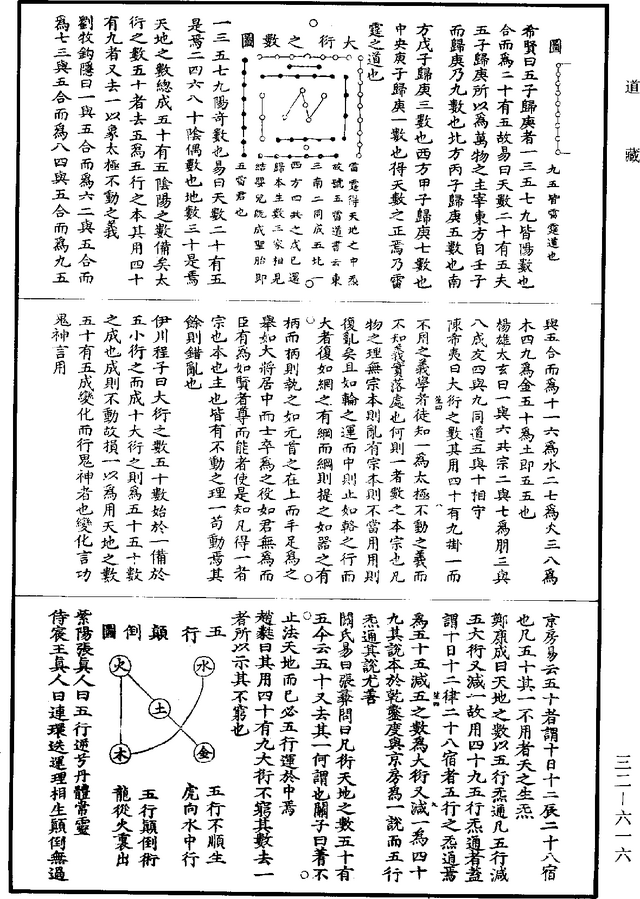 道藏
圖
九五皆雷霆道也
希賢曰五子歸庚者一三五七九皆陽數也
合而爲二十有五故易曰天數二十有五夫
五子歸庚所以爲萬物之主宰東方自壬子
而歸庚乃九數也北方丙子歸庚五數也南
方戊子歸庚三數也西方甲子歸庚七數也
中央庚子歸庚一數也得天數之正焉乃雷
霆之道也
大衍之數圖
雷霆得天地之中炁
故號五雷道書云東
三南二同成五北一
西方四共之戊己還
歸本生數三家相見
結嬰兒既成聖胎即
五雷君也
一三五七九陽奇數也易曰天數二十有五
是焉二四六八十陰偶數也地數三十是焉
天地之數總成五十有五陰陽之數備矣太
衍之數五十者去五爲五行之本其用四十
有九者又去一以象太極不動之義
劉牧鈎隱曰一與五合而爲六二與五合而
爲七三與五合而爲八四與五合而爲九五
與五合而爲十一六爲水二七爲火三八爲
木四九爲金五十爲土即五五也
楊雄太玄曰一與六共宗二與七爲朋三與
八成友四與九同道五與十相守
陳希夷曰大衍之數其用四十有九掛一而
不用之義學者徒知一爲太極不動之義而
不知義實落處也何則一者數之本宗也凡
物之理無宗本則亂有宗本則不當用用則
復亂矣且如輪之運而中則止如輅之行而
大者復如網之有綱而綱則提之如器之有
柄而柄則執之如元首之在上而手足爲之
舉如大將居中而士卒爲之役如君無爲而
臣有爲如賢者尊而能者使是知凡得一者
宗也本也主也皆有不動之理一苟動焉其
餘則錯亂也
伊川程子曰大衍之數五十數始於一備於
五小衍之而成十大衍之則爲五十五十數
之成也成則不動故損一以爲用天地之數
五十有五成變化而行鬼神者也變化言功
鬼神言用
京房易云五十者謂十日十二辰二十八宿
也凡五十其一不用者天之生炁
鄭康成曰天地之數以五行炁通凡五行減
五大衍又減一故用四十九五行炁通者蓋
謂十日十二律二十八宿者五行之炁道焉
爲五十五減五之數爲大衍又減一爲四十
九其說本於乾鑿度與京房爲一說而五行
炁通其說尤善
關氏易曰張彝問曰凡衍天地之數五十有
五今云五十又去其一何謂也關子曰蓍不
止法天地而已必五行運於中焉
趙蕤曰其用四十有九大衍不窮其數去一
者所以示其不窮也
五行顛倒圖
水
火
土
金
木
五行不順生
虎向水中行
五行顛倒術
龍從火裏出
紫陽張真人曰五行逆兮丹體常靈
侍宸王真人曰連環迭運理相生顛倒無過
三二—六一六